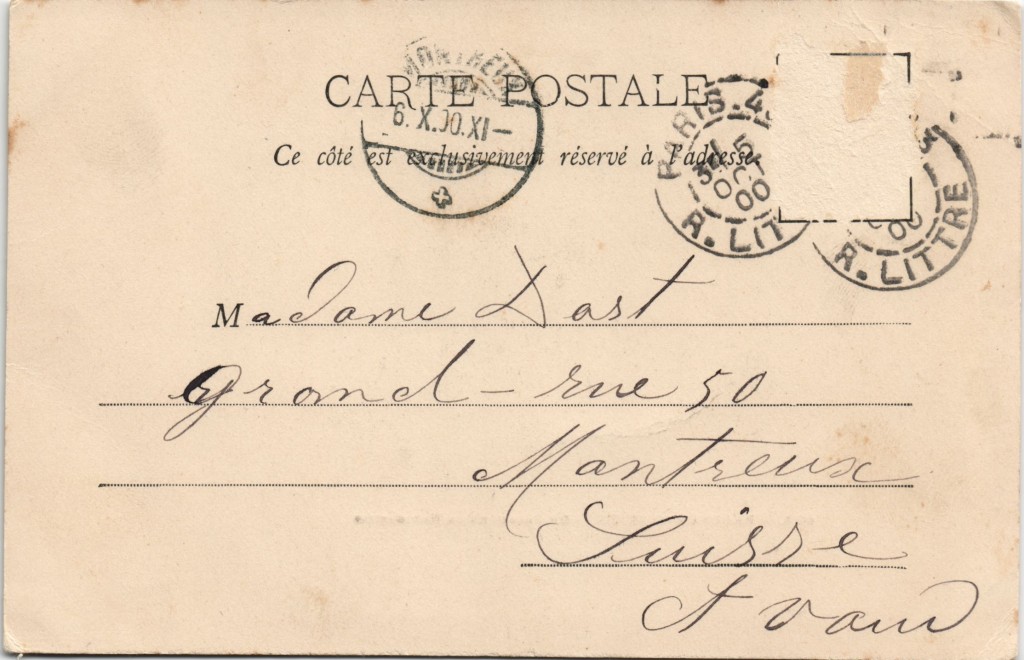 CARTE POSTALE
Ce côté est exclusivement réservé à l'adresse
MONTREUX
6. X. 00. XI—
PARIS
5
OCT
00
R. LITTRE
00
R. LITTRE
Madame Dast
grand-rue 50
Montreux
Suisse
ct vaud